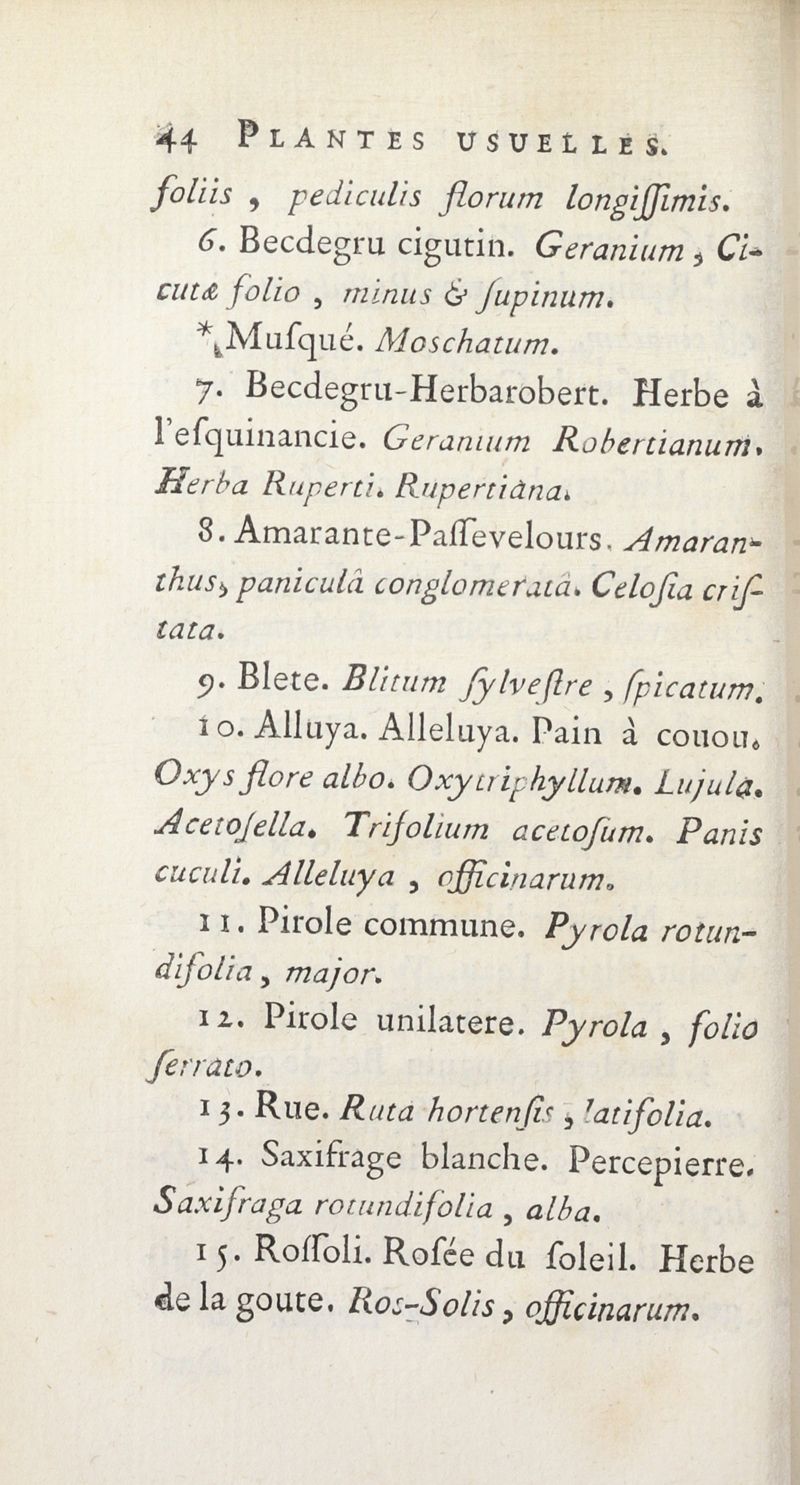 44 PLANTES USUELLES.
foliis , pediculis florum longiſſimis.
6. Becdegru cigutin. Geranium , Ci-
cutæ folio , minus & ſupinum.
* Muſqué. Moschatum.
7. Becdegru-Herbarobert. Herbe à
l'eſquinancie. Geranium Robertianum.
Herba Ruperti. Rupertiàna.
8. Amarante-Paſſevelours. Amaran-
thus, paniculâ conglomeratâ. Celoſia criſ-
tata.
9. Blete. Blitum ſylveſtre , ſpicatum.
10. Alluya. Alleluya. Pain à couou.
Oxys flore albo. Oxytriphyllum. Lujula.
Acetoſella. Trifolium acetoſum. Panis
cuculi. Alleluya , officinarum.
11. Pirole commune. Pyrola rotun-
difolia , major.
12. Pirole unilatere. Pyrola , folio
ſerrato.
13. Rue. Ruta hortenſis , latifolia.
14. Saxifrage blanche. Percepierre.
Saxifraga rotundifolia , alba.
15. Roſſoli. Roſée du ſoleil. Herbe
de la goute. Ros-Solis , officinarum.